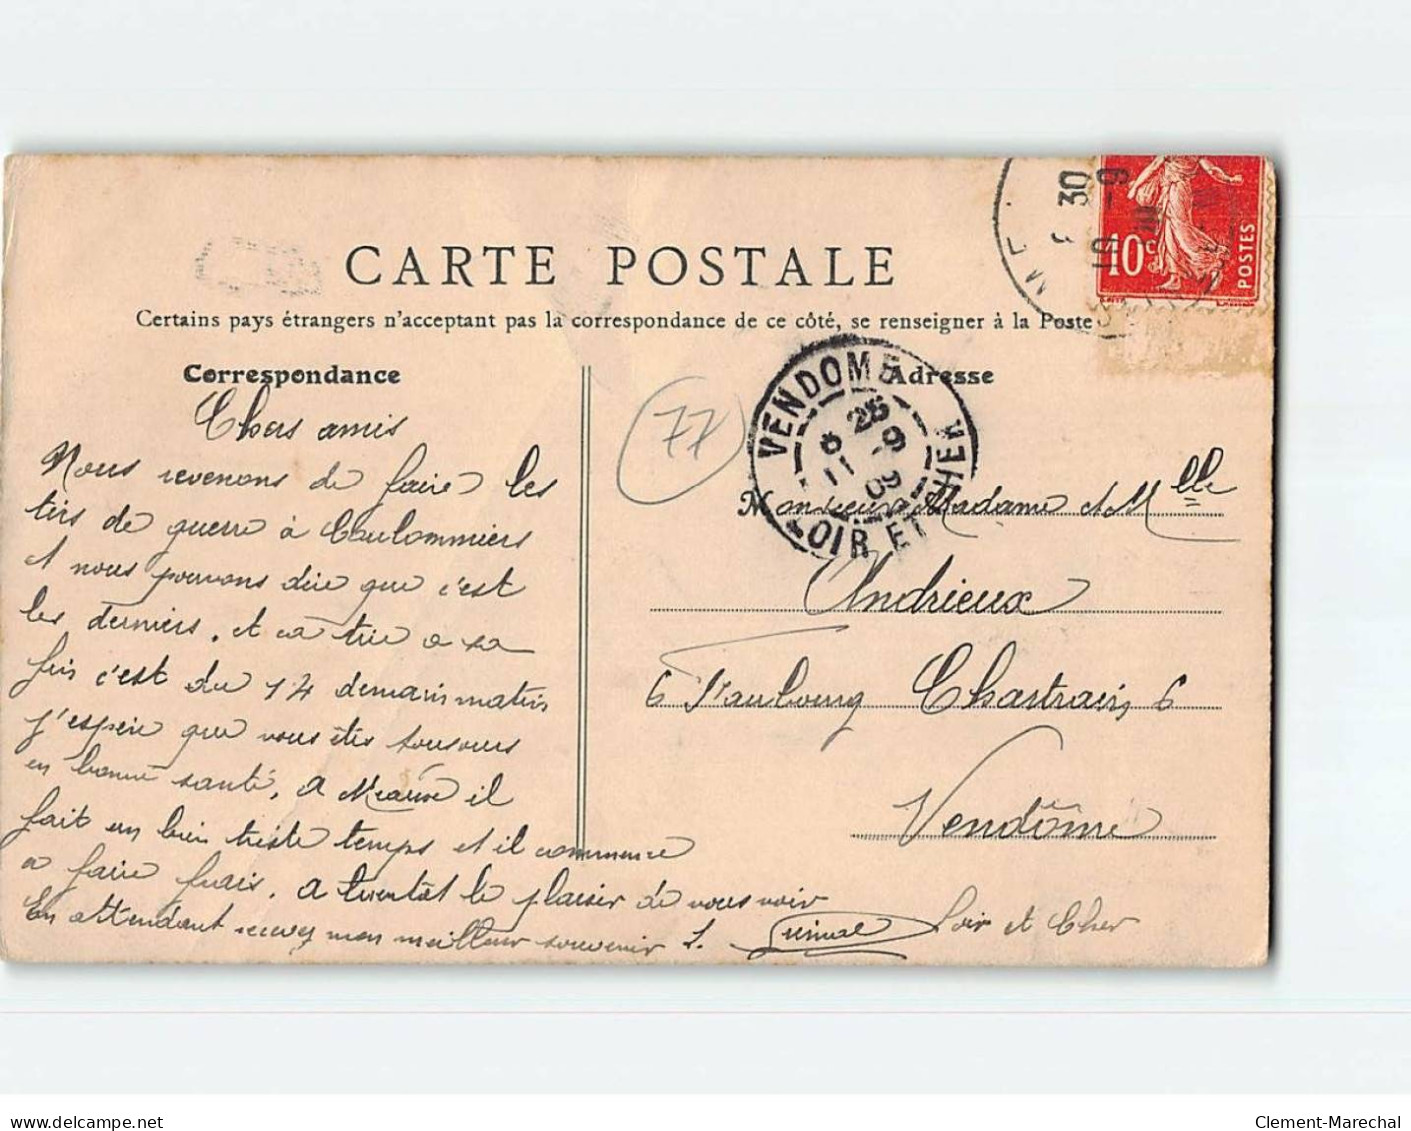 CARTE POSTALE
Certains pays étrangers n'acceptant pas la correspondance de ce côté, se renseigner à la Poste
Correspondance
Chers amis
Nous revenons de faire les
tirs de guerre à Coulommiers
et nous pouvons dire que c'est
les derniers, et ca tire a sa
fin c'est du 14 demain matin
j'espère que vous êtes toujours
en bonne santé, a Meaux il
fait un bien triste temps et il commence
a faire frais. a bientôt le plaisir de vous voir
En attendant recevez mon meilleur souvenir L.
Adresse
Monsieur Madame et Mlle
Andrieux
6 Faubourg Chartrain, 6
Vendôme
Loir et Cher
77
VENDOME
25
-9
09
LOIR ET CHER
30
-9
10c
POSTES
delcampe.net
Clement-Marechal